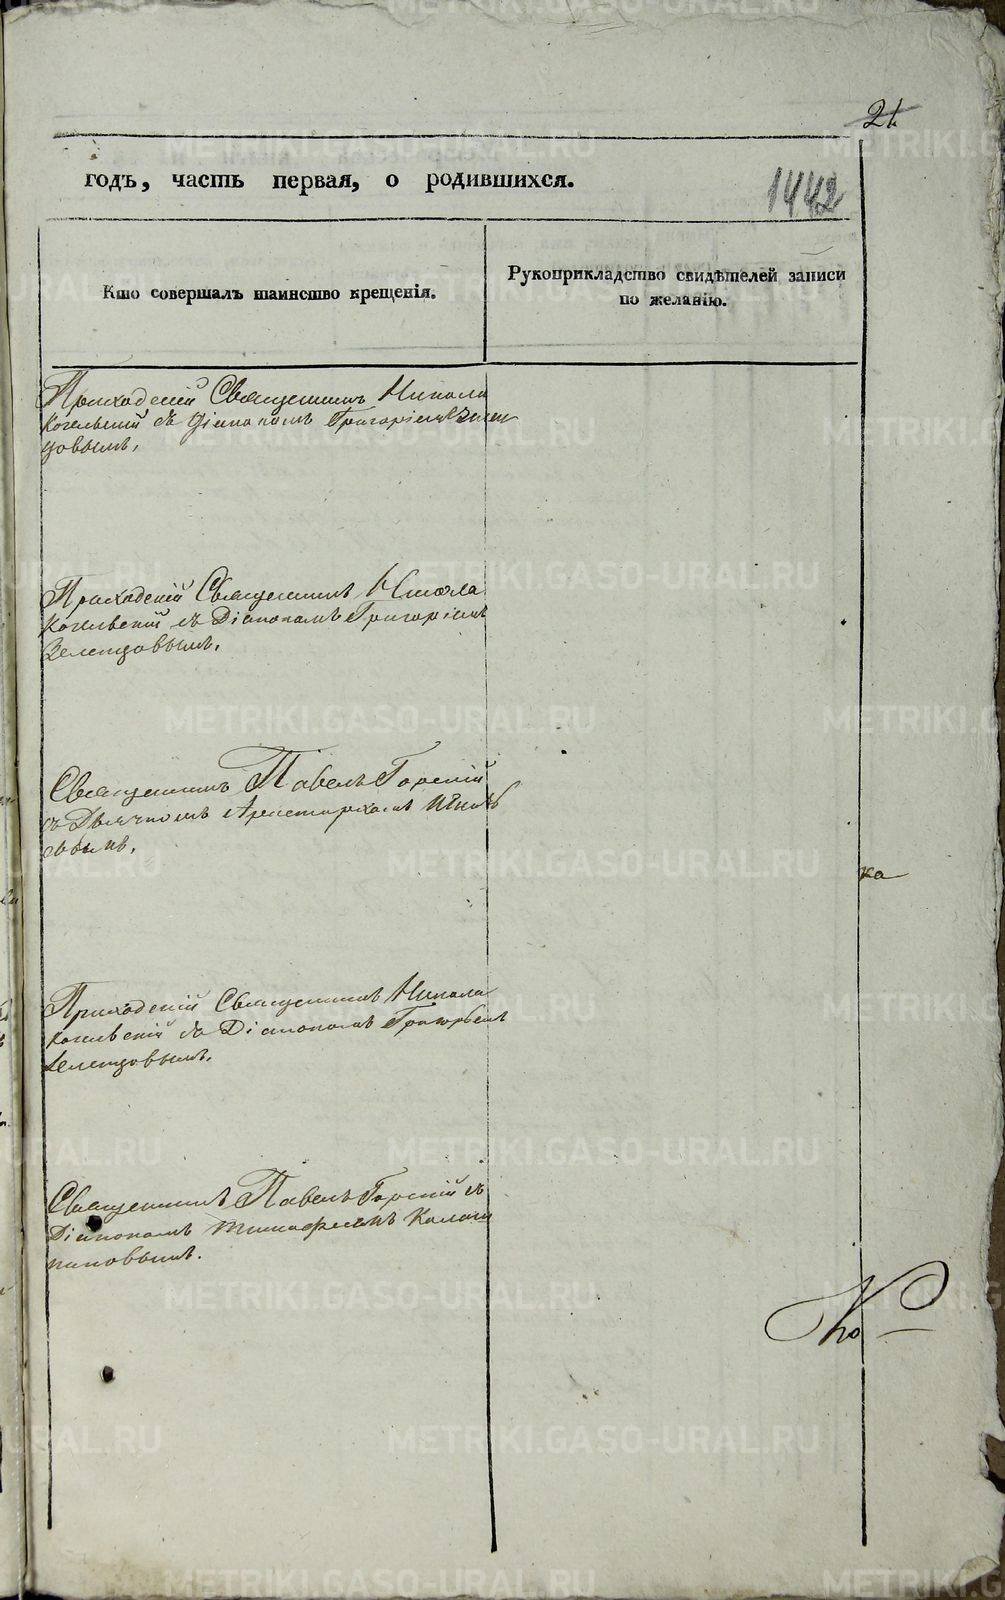 21
годъ, часть первая, о родившихся.
1442
Кто совершалъ таинство крещенія.
Рукоприкладство свидѣтелей записи
по желанію.
Приходскій Священникъ Никола
Когельскій съ Діакономъ Григоріемъ
цовымъ,
Приходскій Священникъ Никола
Когельскій съ Діакономъ Григоріемъ
Зеленцовымъ.
Священникъ Павелъ Горскій
съ Дьячкомъ Аристархомъ
Приходскій Священникъ Никола
Когельскій съ Діакономъ Григорьемъ
Зеленцовымъ.
Священникъ Павелъ Горскій съ
Діакономъ Тимофеемъ
ка
По
METRIKI.GASO-URAL.RU